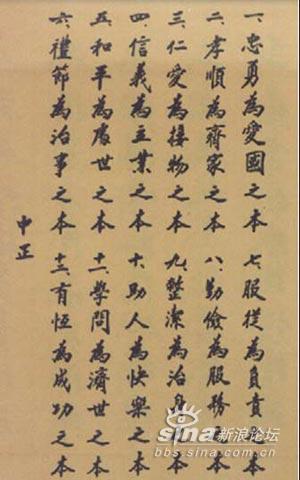 一、忠勇為愛國之本
二、孝順為齊家之本
三、仁愛為接物之本
四、信義為立業之本
五、和平為處世之本
六、禮節為治事之本
七、服從為負責之本
八、勤儉為服務之本
九、整潔為治身之本
十、助人為快樂之本
十一、學問為濟世之本
十二、有恆為成功之本
中正
sina新浪论坛
bbs.sina.com.cn